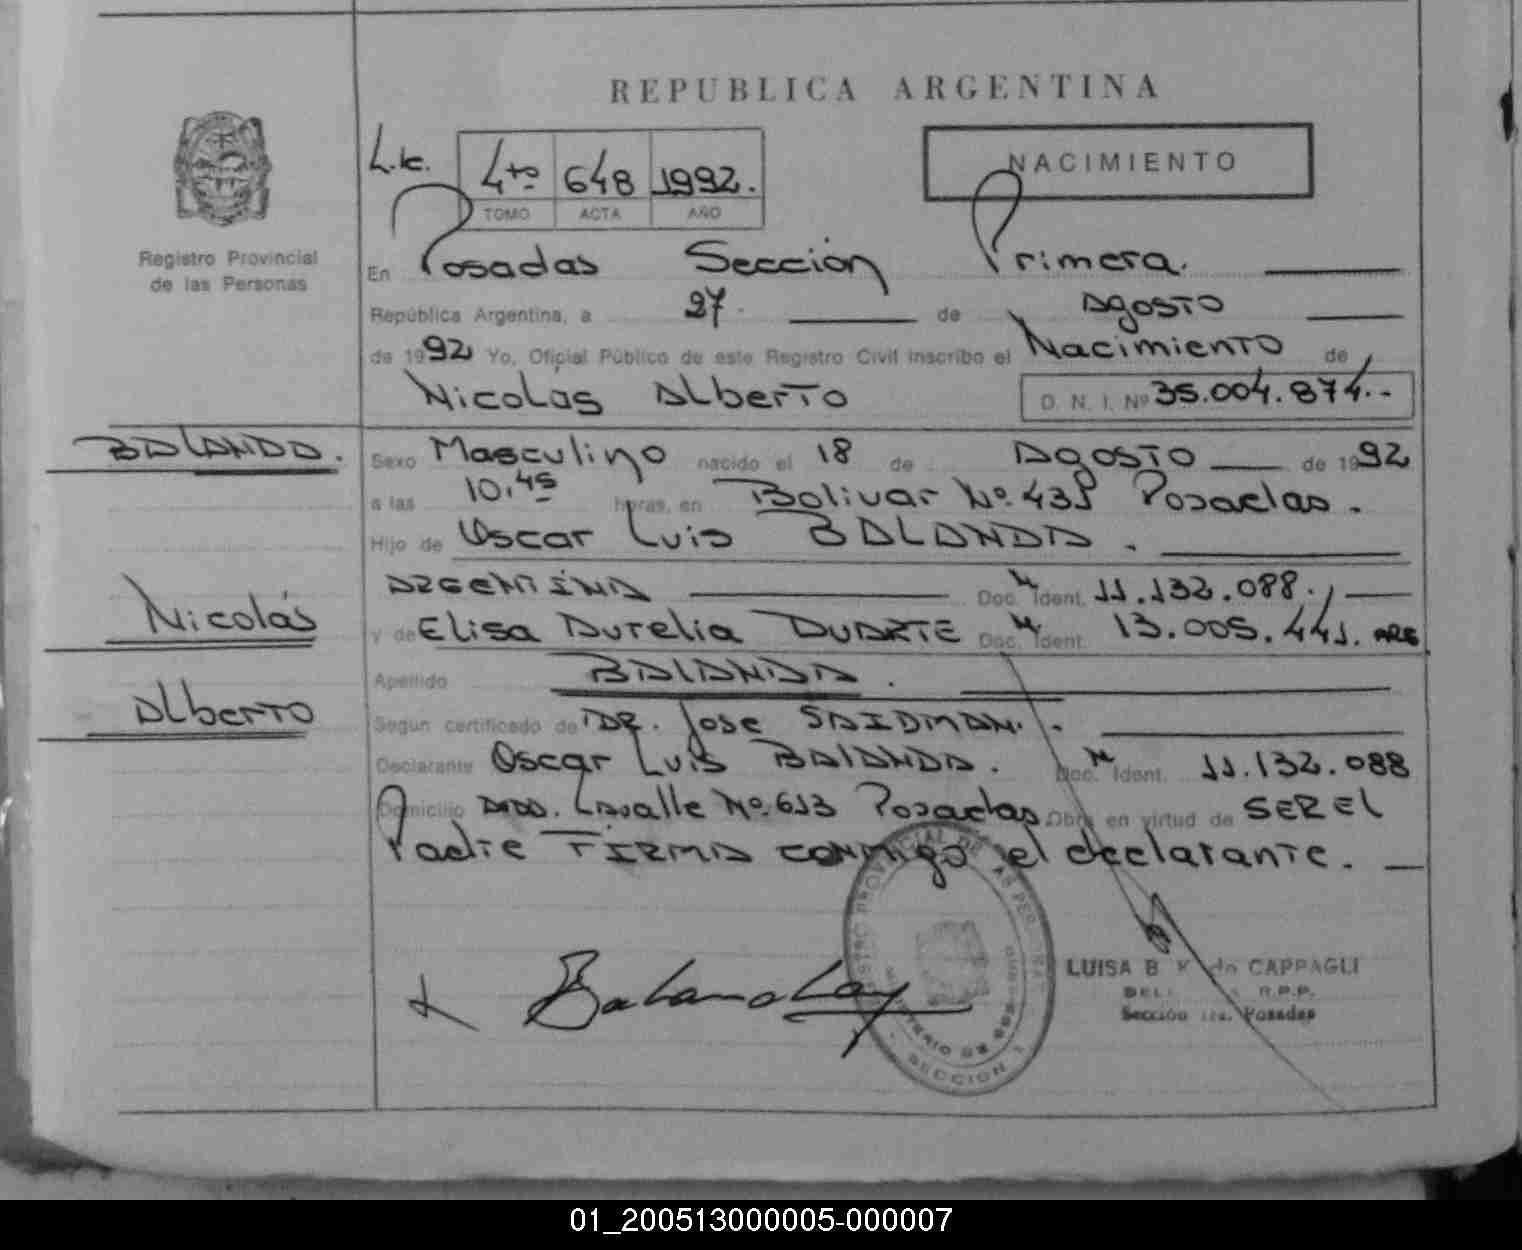 REPUBLICA ARGENTINA
NACIMIENTO
4to 648 1992.
TOMO ACTA AÑO
Registro Provincial
de las Personas
En Posadas Sección Primera.
República Argentina, a 27 de Agosto
de 1992 Yo, Oficial Público de este Registro Civil inscribo el Nacimiento de
Nicolás Alberto D. N. I. Nº 35.004.874.-
BALANDA.
Sexo Masculino nacido el 18 de Agosto de 1992
a las 10,45 horas, en Bolivar Nº. 435 Posadas.
Hijo de Oscar Luis BALANDA.
ARGENTINA Doc. Ident. 11.132.088.
Nicolás
y de Elisa Aurelia DUARTE Doc. Ident. 13.005.441. ARG
Apellido BALANDA.
Alberto
Segun certificado de DR. Jose SAIDMAN.
Declarante Oscar Luis BALANDA. Doc. Ident. 11.132.088
Domicilio Lavalle Nº. 613 Posadas Obra en virtud de SER EL
Padre FIRMA conmigo el declarante.
Balanda
LUISA B. K. de CAPPAGLI
R.P.P.
Sección 1ra. Posadas
SECCION 1
01_200513000005-000007